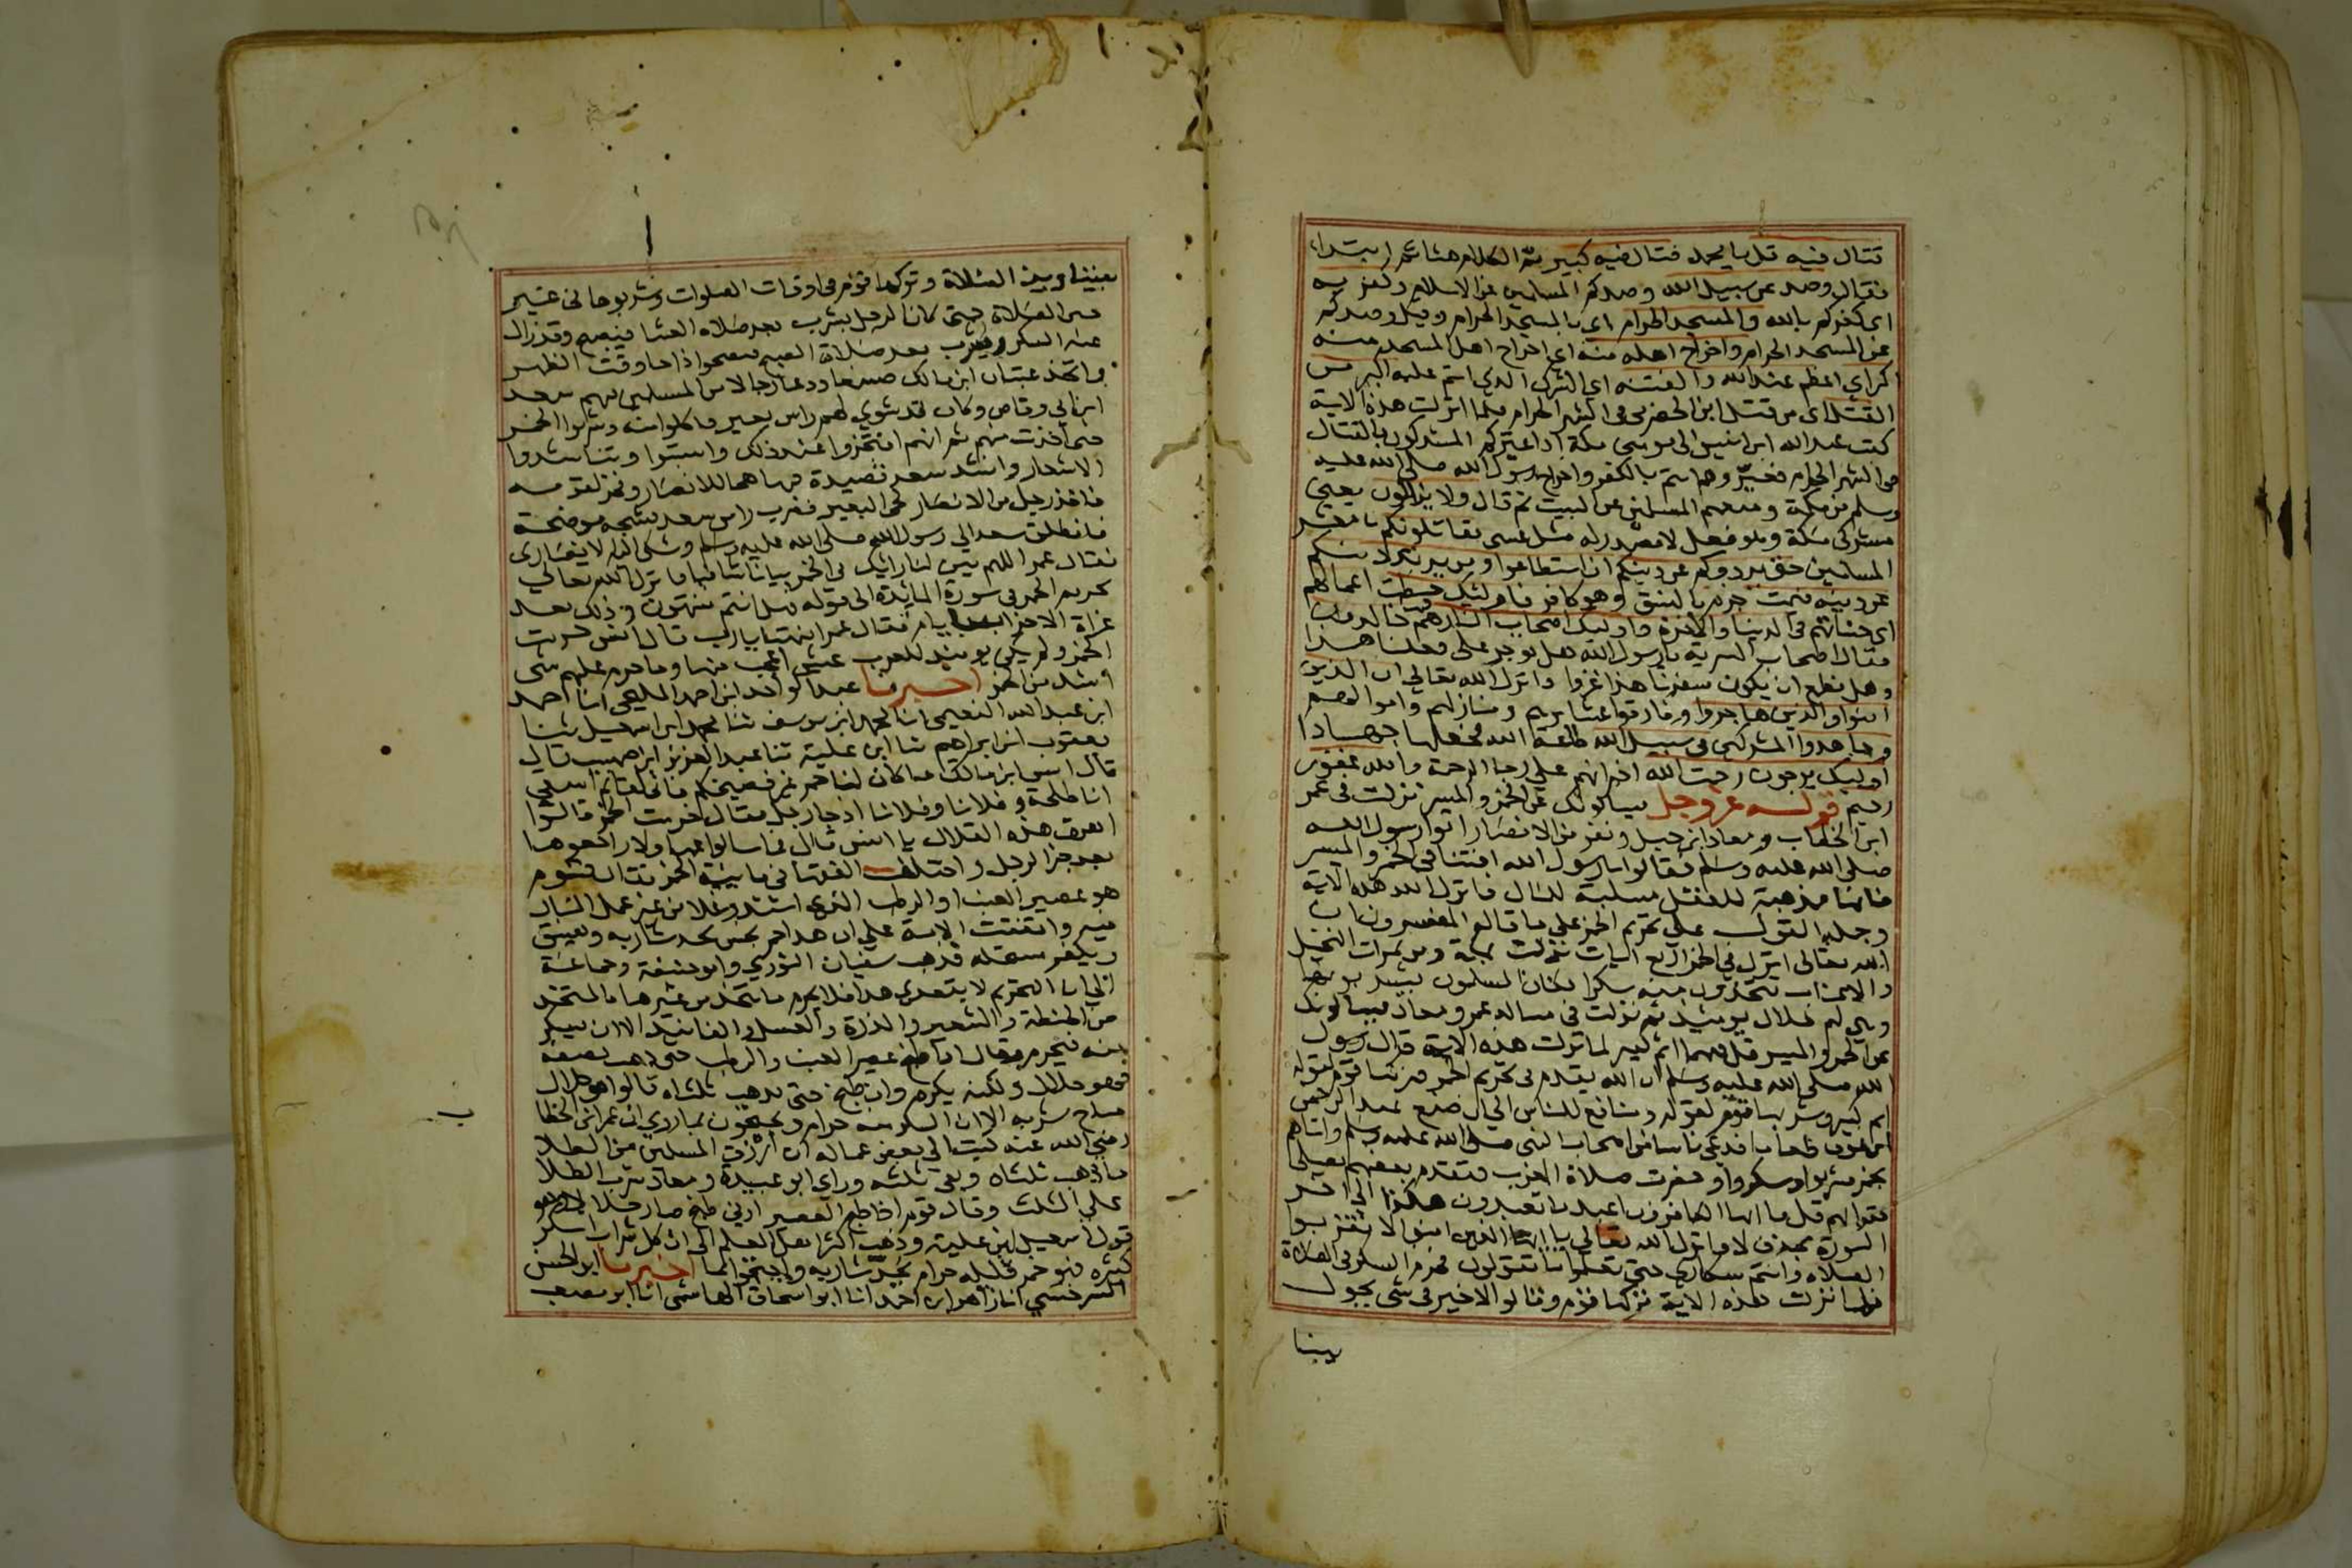 قتال فيه قل يا محمد قتال فيه كبير تم الكلام هنا ثم ابتداء
فقال وصد عن سبيل الله وصدكم المسلمين عن الاسلام وكفر به
اى كفركم بالله والمسجد الحرام اى بالمسجد الحرام وقيل وصدكم
عن المسجد الحرام واخراج اهله منه اي اخراج اهل المسجد منه
اكبر اي اعظم عند الله والفتنه اي الشرك الذي انتم عليه اكبر من
القتل اى من قتل ابن الحضرمى فى الشهر الحرام فلما انزلت هذه الاية
كتب عبد الله ابن انيس الى مومنى مكة اذا عيركم المشركون بالقتال
فى الشهر الحرام فعيروهم انتم بالكفر واخراج رسول الله صلى الله عليه
وسلم من مكة ومنعهم المسلمين عن البيت ثم قال ولا يزالون يعنى
مشركى مكة وهو فعل لا مصدر له مثل عسى يقاتلونكم يا معشر
المسلمين حتى يردوكم عن دينكم ان استطاعوا ومن يرتدد منكم
عن دينه فيمت جزم بالنسق وهو كافر فاوليك حبطت اعمالهم
اى حسناتهم فى الدنيا والاخرة واوليك اصحاب النار هم فيها خالدون
فقال اصحاب السرية يا رسول الله هل نوجر على فعلنا هذا
وهل نطمع ان يكون سفرنا هذا غزوا وانزل الله تعالى ان الذين
امنوا والذين هاجروا وفارقوا عشايرهم ومنازلهم واموالهم
وجاهدوا المشركين فى سبيل الله طاعة الله فجعلها جهادا
اوليك يرجون رحمت الله اخبر انهم على رجا الرحمة والله غفور
رحيم قوله عز وجل يسالونك عن الخمر والميسر نزلت فى عمر
ابن الخطاب ومعاذ ابن جبل ونفر من الانصار اتوا رسول الله
صلى الله عليه وسلم فقالوا يا رسول الله افتنا فى الخمر والميسر
فانهما مذهبة للعقل مسلبة للمال فانزل الله هذه الاية
وجملة القول على تحريم الخمر على ما قاله المفسرون ان
الله تعالى انزل فى الخمر اربع ايات نزلت بمكة ومن ثمرات النخيل
والاعناب تتخذون منه سكرا فكان المسلمون يشربونها
وهى لهم حلال يوميذ ثم نزلت فى مسالة عمر ومعاذ يسالونك
عن الخمر والميسر قل فيهما اثم كبير لما نزلت هذه الاية قال رسول
الله صلى الله عليه وسلم ان الله يتقدم فى تحريم الخمر فتركها قوم لقوله
اثم كبير وشربها قوم لقوله ومنافع للناس الى ان صنع عبد الرحمن
ابن عوف طعاما فدعى ناسا من اصحاب النبى صلى الله عليه وسلم واتاهم
بخمر فشربوا وسكروا وحضرت صلاة المغرب فتقدم بعضهم ليصلى
فقرا بهم قل يا ايها الكافرون اعبد ما تعبدون هكذا الى اخر
السورة بحذف لا فانزل الله تعالى يا ايها الذين امنوا لا تقربوا
الصلاه وانتم سكارى حتى تعلموا ما تقولون فحرم السكر فى الصلاة
فلما نزلت هذه الاية تركها قوم وقالوا لا خير فى شى يحول
بيننا
بيننا وبين الصلاة وتركها قوم فى اوقات الصلوات وشربوها فى غير
حين الصلاة حتى كان الرجل يشرب بعد صلاة العشا فيصبح وقد زال
عنه السكر ويشرب بعد صلاة الصبح فيصحوا اذا جا وقت الظهر
واتخذ عتبان ابن مالك صنيعا ودعا رجالا من المسلمين فيهم سعد
ابن ابي وقاص وكان قد شوي لهم راس بعير فاكلوا منه وشربوا الخمر
حتى اخذت منهم ثم انهم افتخروا عند ذلك وانتسبوا وتناشدوا
الاشعار وانشد سعد قصيدة فيها هجا للانصار وفخر لقومه
فاخذ رجل من الانصار لحى البعير فضرب راس سعد فشجه موضحة
فانطلق سعد الى رسول الله صلى الله عليه وسلم وشكى اليه الانصاري
فقال عمر اللهم بين لنا رايك فى الخمر بيانا شافيا فانزل الله تعالى
تحريم الخمر في سورة المائدة الى قوله فهل انتم منتهون وذلك بعد
غزاة الاحزاب بايام فقال عمر انتهينا يا رب قال انس حرمت
الخمر ولم يكن يوميذ للعرب عيش اعجب منها وما حرم عليهم شى
اشد من الخمر اخبرنا عبد الواحد ابن احمد المليحى انا احمد
ابن عبد الله النعيمى انا محمد ابن يوسف ثنا محمد ابن اسمعيل ثنا
يعقوب ابن ابراهيم ثنا ابن علية ثنا عبد العزيز ابن صهيب قال
قال انس ابن مالك ما كان لنا خمر غير فضيخكم فانى لقائم اسقى
ابا طلحة وفلانا وفلانا اذ جا رجل فقال حرمت الخمر قالوا
اهرق هذه القلال يا انس قال فما سالوا عنها ولا راجعوها
بعد خبر الرجل واختلف الفقها في ماهية الخمر فقال قوم
هو عصير العنب او الرطب الذى اشتد وغلا من غير عمل النار
فيه واتفقت الامة على ان هذا خمر نجس يحد شاربه ويفسق
ويكفر مستحله فذهب سفيان الثوري وابو حنيفة وجماعة
الى ان التحريم لا يتعدى هذا فلا يحرم ما يتخذ من غيرهما كالمتخذ
من الحنطة والشعير والذرة والعسل والفانيد الا ان يسكر
منه فيحرم وقال اذا طبخ عصير العنب والرطب حتى ذهب نصفه
فهو حلال ولكنه يكره وان طبخ حتى يذهب ثلثاه قالوا هو حلال
مباح شربه الا ان السكر منه حرام ويحتجون بما روي ان عمر ابن الخطاب
رضي الله عنه كتب الى بعض عماله ان ارزق المسلمين من الطلا
ما ذهب ثلثاه وبقى ثلثه وراى ابو عبيدة ومعاذ شرب الطلا
على الثلث وقال قوم اذا طبخ العصير ادنى طبخ صار حلالا وهو
قول اسمعيل ابن علية وذهب اكثر اهل العلم الى ان كل شراب اسكر
كثيره فهو خمر قليله حرام يحد شاربه واحتجوا بما اخبرنا ابو الحسن
السرخسي انا زاهر ابن احمد انا ابو اسحاق الهاشمى انا ابو مصعب